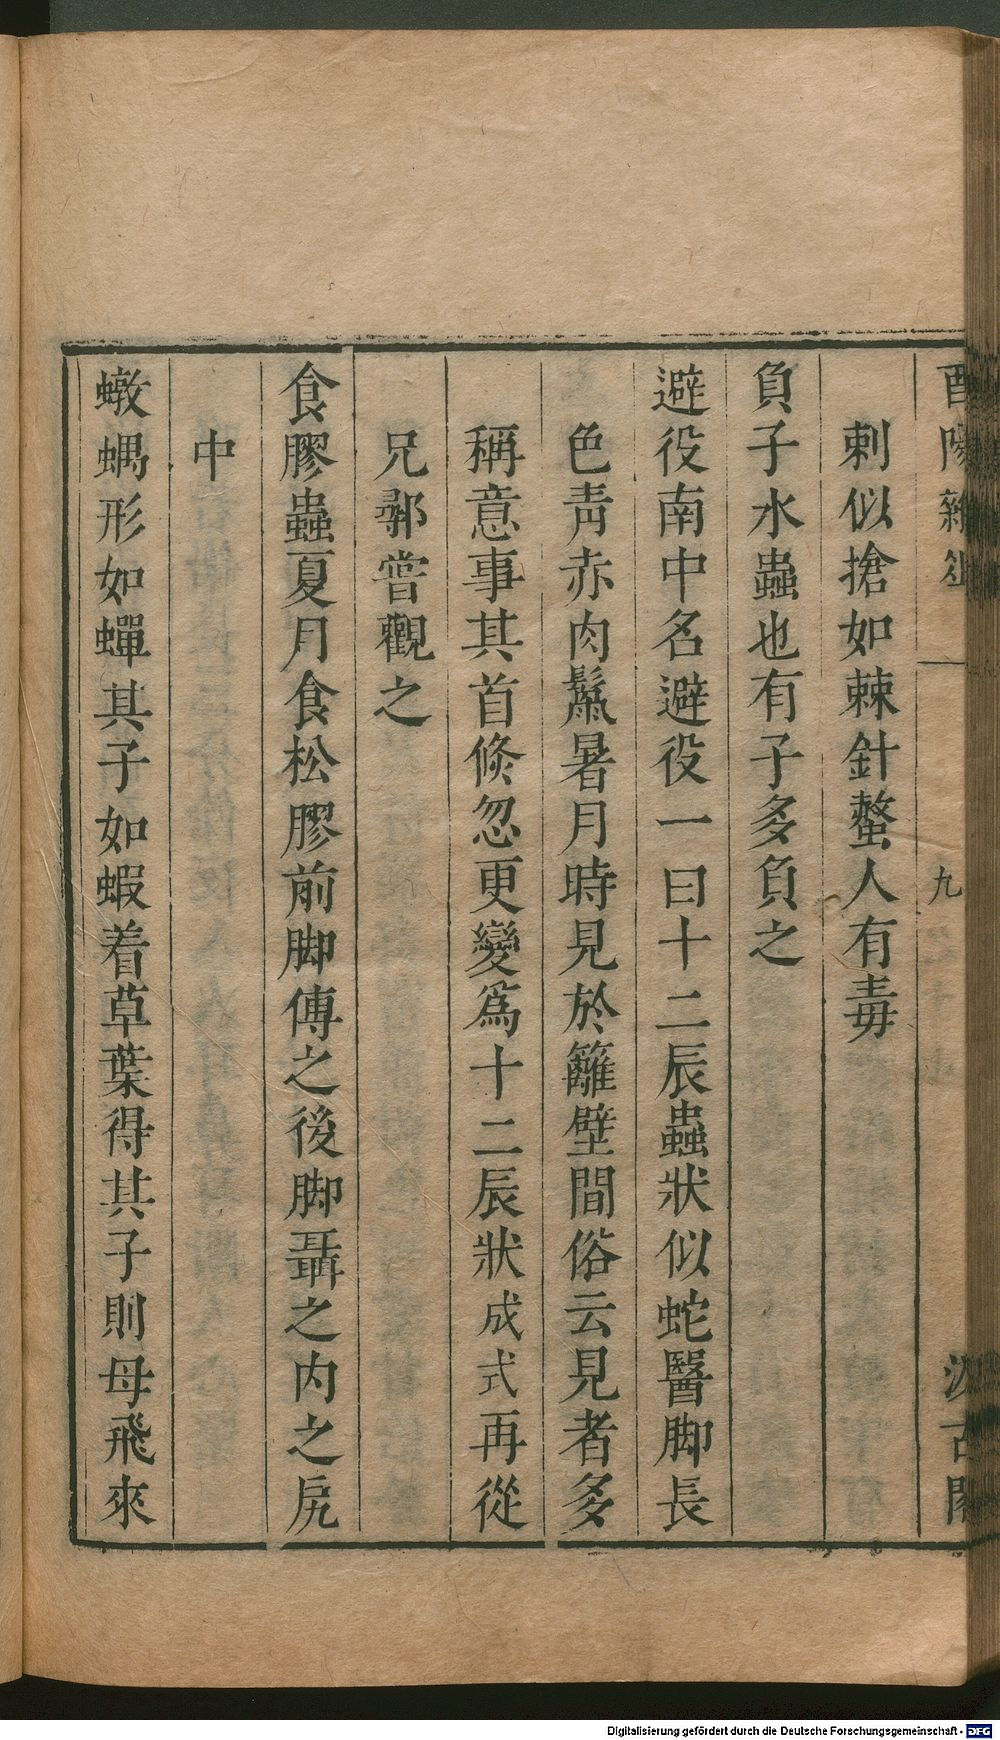 酉陽雜俎
九
汲古閣
刺似搶如棘針螫人有毒
負子水蟲也有子多負之
避役南中名避役一曰十二辰蟲狀似蛇醫脚長
色靑赤肉鬛暑月時見於籬壁間俗云見者多
稱意事其首倐忽更變爲十二辰狀成式再從
兄鄩嘗觀之
食膠蟲夏月食松膠前脚傅之後脚聶之内之尻
中
蠍形如蟬其子如蝦着草葉得其子則母飛來
Digitalisierung gefördert durch die Deutsche Forschungsgemeinschaft - DFG